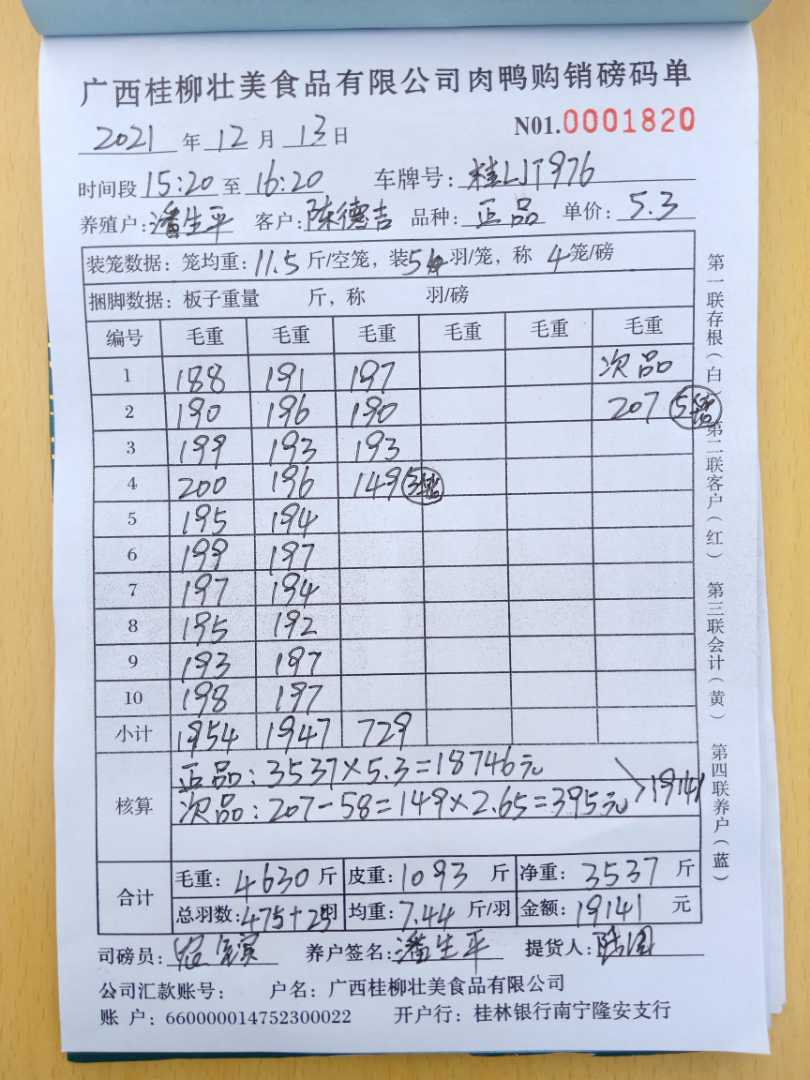 广西桂柳壮美食品有限公司肉鸭购销磅码单
2021 年 12 月 13 日 N01.0001820
时间段 15:20 至 16:20 车牌号: 桂LJT976
养殖户: 潘生平 客户: 陈德吉 品种: 正品 单价: 5.3
装笼数据: 笼均重: 11.5 斤/空笼, 装 5 羽/笼, 称 4 笼/磅
捆脚数据: 板子重量 斤, 称 羽/磅
编号 毛重 毛重 毛重 毛重 毛重 毛重
1 188 191 197 次品
2 190 196 190 207 5笼
3 199 193 193
4 200 196 149 3笼
5 195 194
6 199 197
7 197 194
8 195 192
9 193 197
10 198 197
小计 1954 1947 729
核算 正品: 3537×5.3=18746元
次品: 207-58=149×2.65=395元 >19141
合计 毛重: 4630 斤 皮重: 1093 斤 净重: 3537 斤
总羽数: 475+25 羽 均重: 7.44 斤/羽 金额: 19141 元
司磅员: 养户签名: 潘生平 提货人:
公司汇款账号: 户名: 广西桂柳壮美食品有限公司
账 户: 660000014752300022 开户行: 桂林银行南宁隆安支行
第一联存根(白) 第二联客户(红) 第三联会计(黄) 第四联养户(蓝)